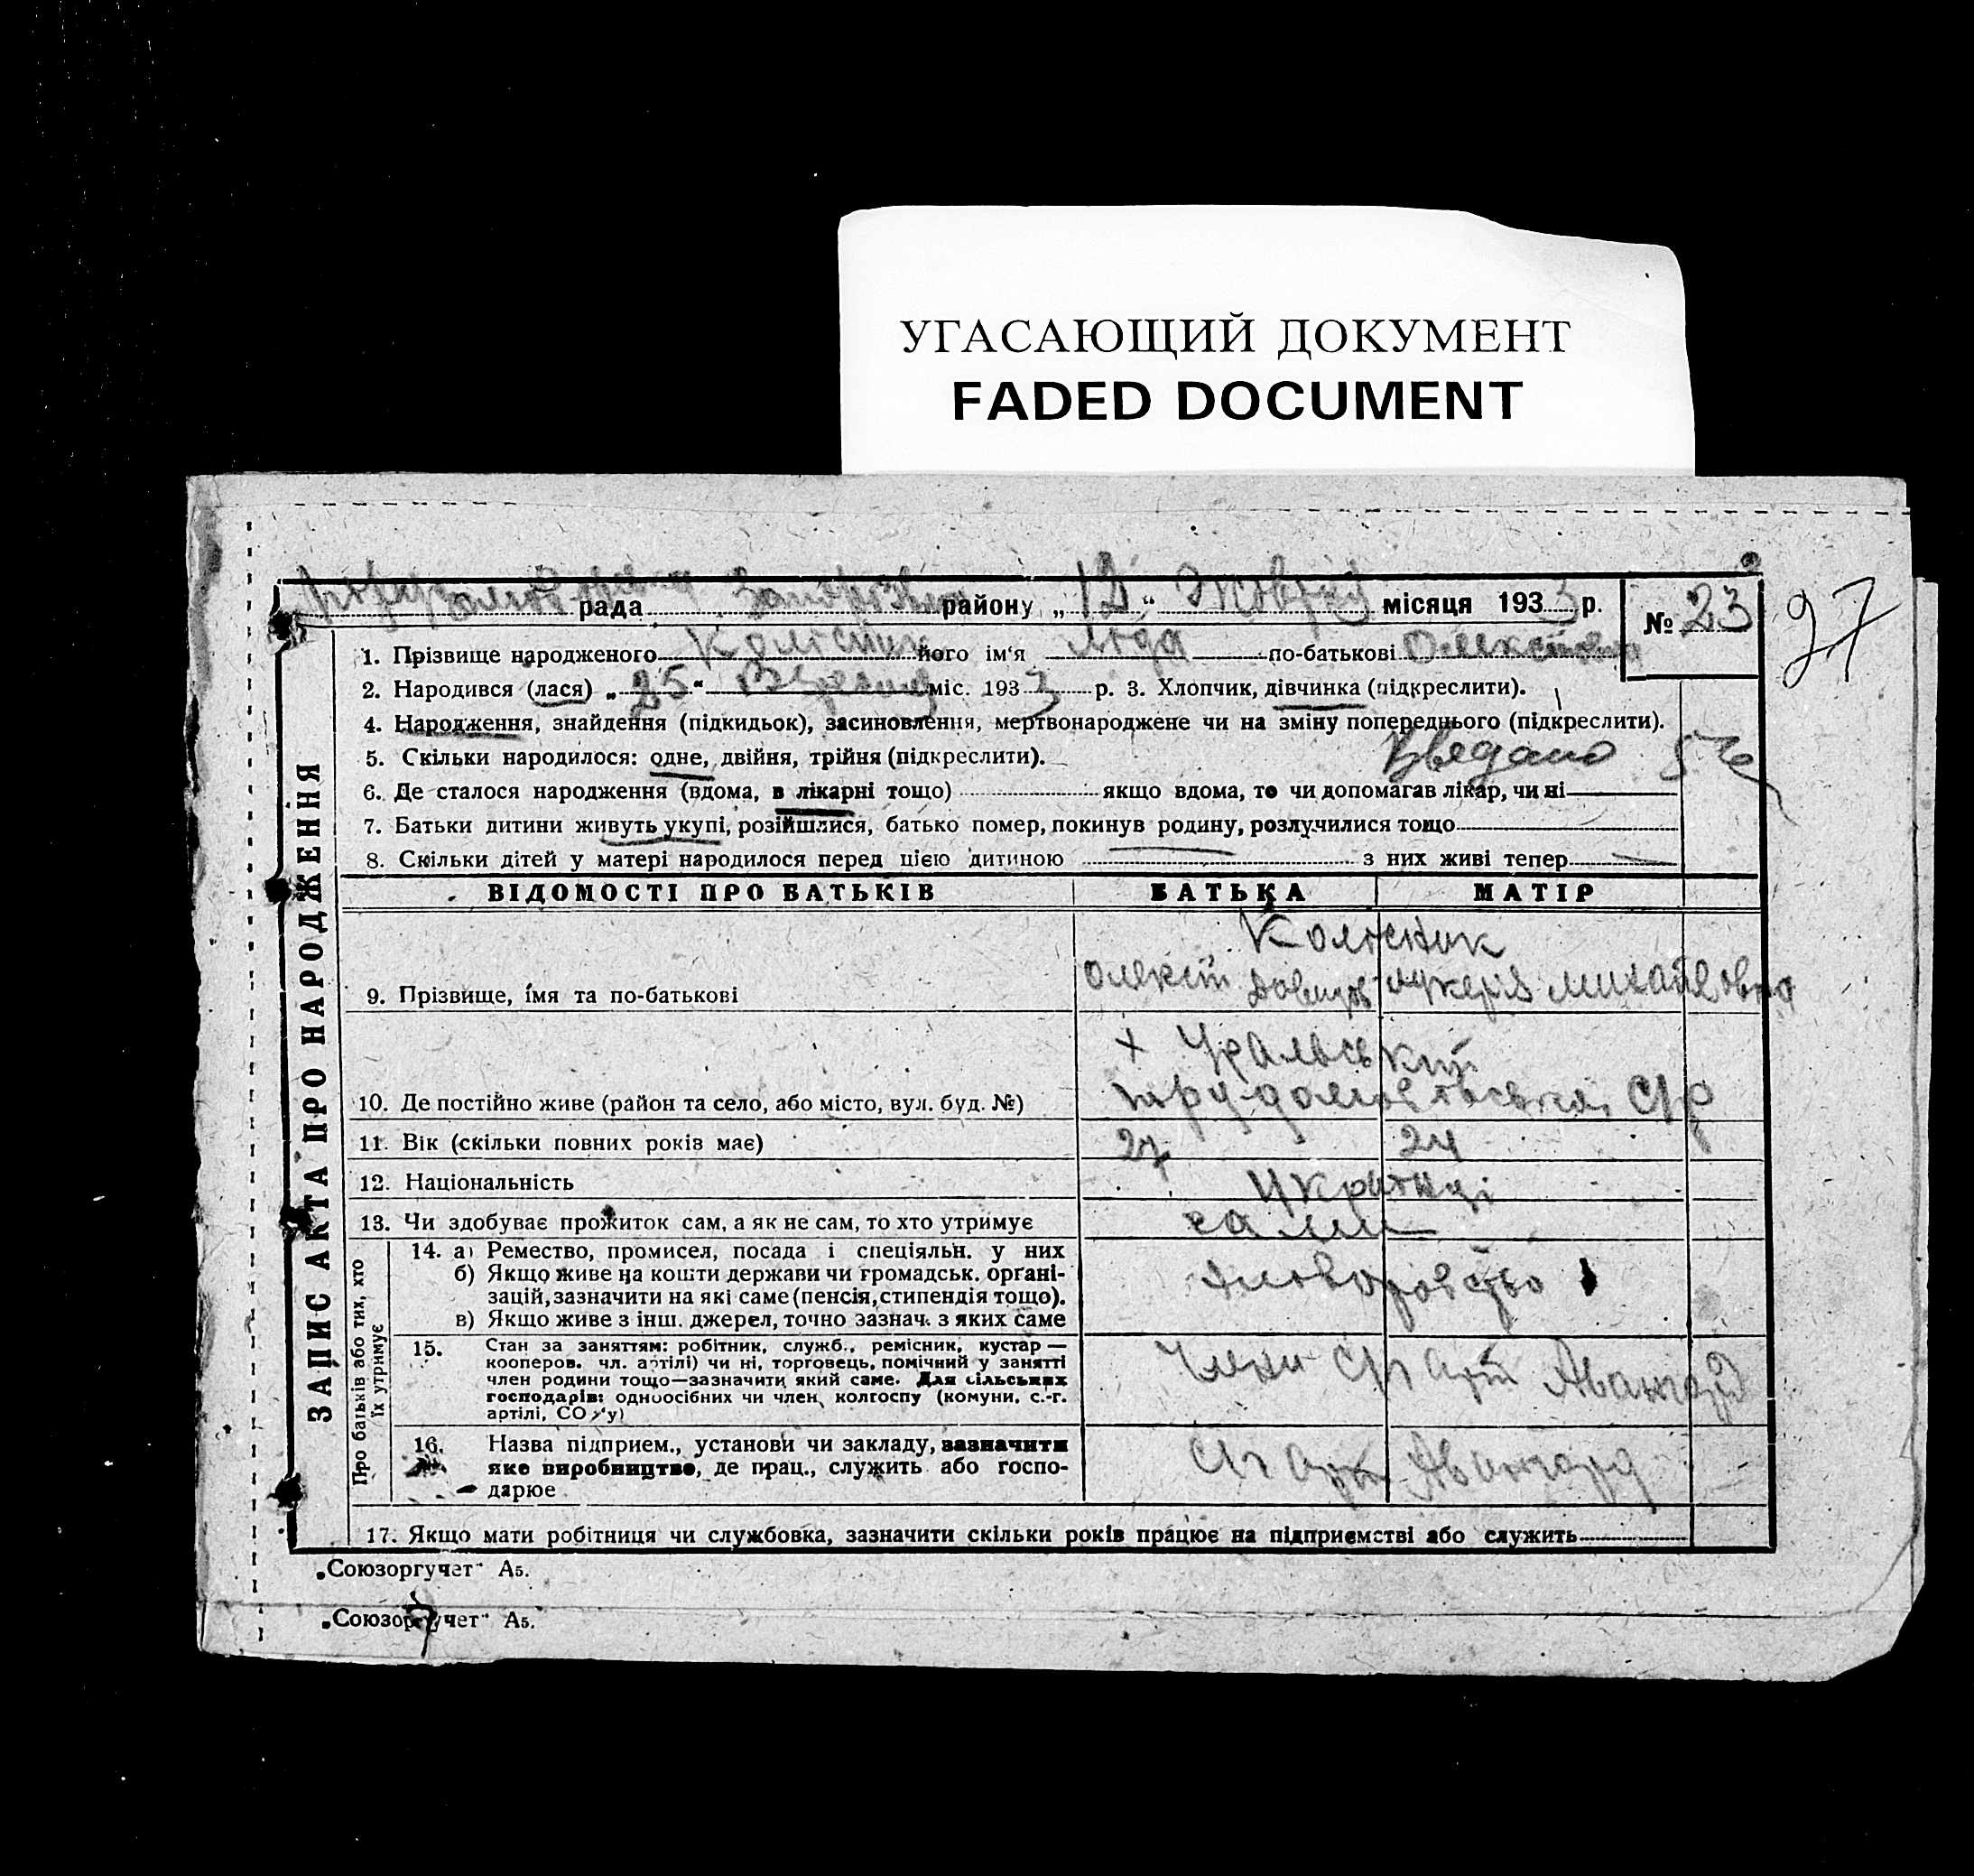 УГАСАЮЩИЙ ДОКУМЕНТ
FADED DOCUMENT
рада району „12“ Жовтня місяця 1933 р. № 23
27
1. Прізвище народженого Колісник його ім'я Ліда по-батькові
2. Народився (лася) „25“ Вересня міс. 1933 р. 3. Хлопчик, дівчинка (підкреслити).
4. Народження, знайдення (підкидьок), засиновлення, мертвонароджене чи на зміну попереднього (підкреслити).
5. Скільки народилося: одне, двійня, трійня (підкреслити).
6. Де сталося народження (вдома, в лікарні тощо) якщо вдома, то чи допомагав лікар, чи ні
7. Батьки дитини живуть укупі, розійшлися, батько помер, покинув родину, розлучилися тощо
8. Скільки дітей у матері народилося перед цією дитиною — з них живі тепер —
ЗАПИС АКТА ПРО НАРОДЖЕННЯ
ВІДОМОСТІ ПРО БАТЬКІВ БАТЬКА МАТІР
Колісник
9. Прізвище, імя та по-батькові Михайловна
10. Де постійно живе (район та село, або місто, вул. буд. №)
11. Вік (скільки повних років має) 27 24
12. Національність Українці
13. Чи здобуває прожиток сам, а як не сам, то хто утримує сами
Про батьків або тих, хто їх утримує
14. а) Ремество, промисел, посада і спеціяльн. у них
б) Якщо живе на кошти держави чи громадськ. органі-
зацій, зазначити на які саме (пенсія, стипендія тощо).
в) Якщо живе з інш. джерел, точно зазнач. з яких саме
15. Стан за заняттям: робітник, служб., ремісник, кустар —
кооперов. чл. артілі) чи ні, торговець, помічний у занятті
член родини тощо—зазначити який саме. Для сільських
господарів: одноосібних чи член колгоспу (комуни, с.-г.
артілі, СОЗ'у)
Члени С/г арт Авангард
16. Назва підприєм., установи чи закладу, зазначити
яке виробництво, де прац., служить або госпо-
дарює
С/г арт Авангард
17. Якщо мати робітниця чи службовка, зазначити скільки років працює на підприємстві або служить
„Союзоргучет“ А5.
„Союзоргучет“ А5.